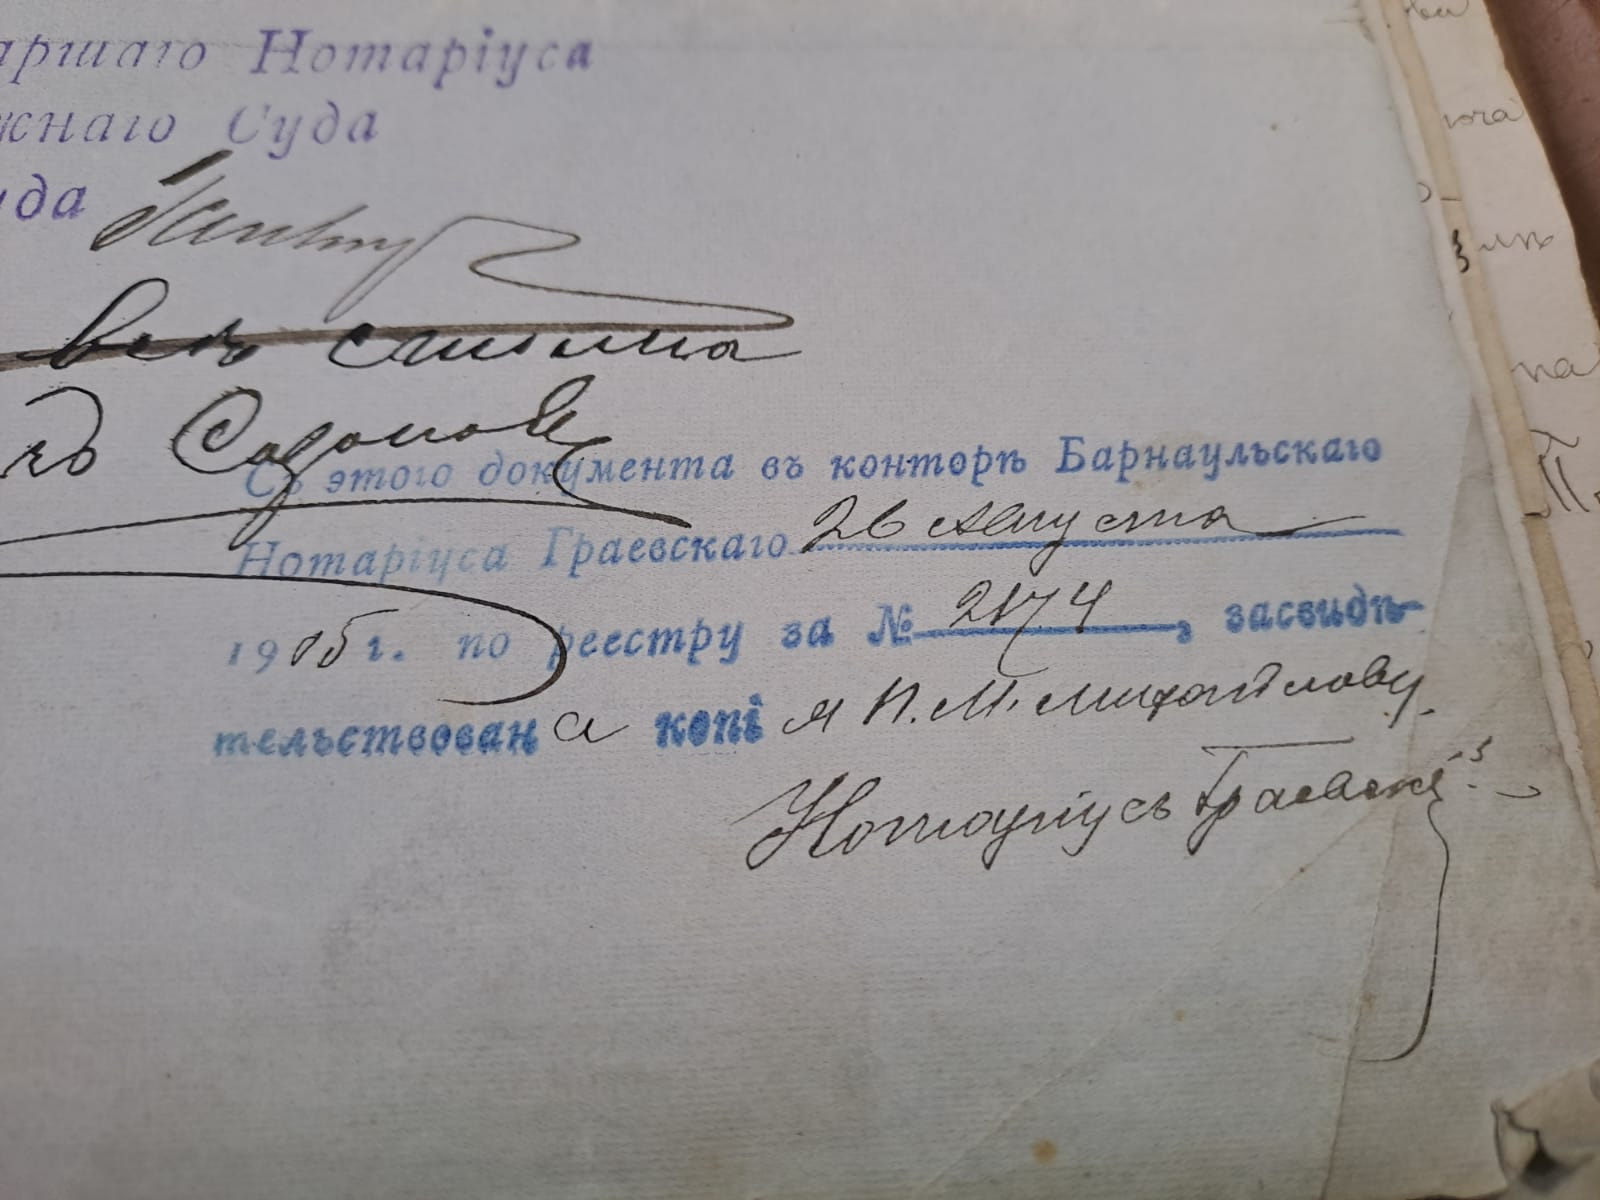 аршаго Нотаріуса
жнаго Суда
уда
Созонов
Съ этого документа въ конторѣ Барнаульскаго
Нотаріуса Граевскаго 26 августа
1905 г. по реестру за № 2174, засвидѣ-
тельствована копія П. М. Михайлову.
Нотаріусъ Граевскій